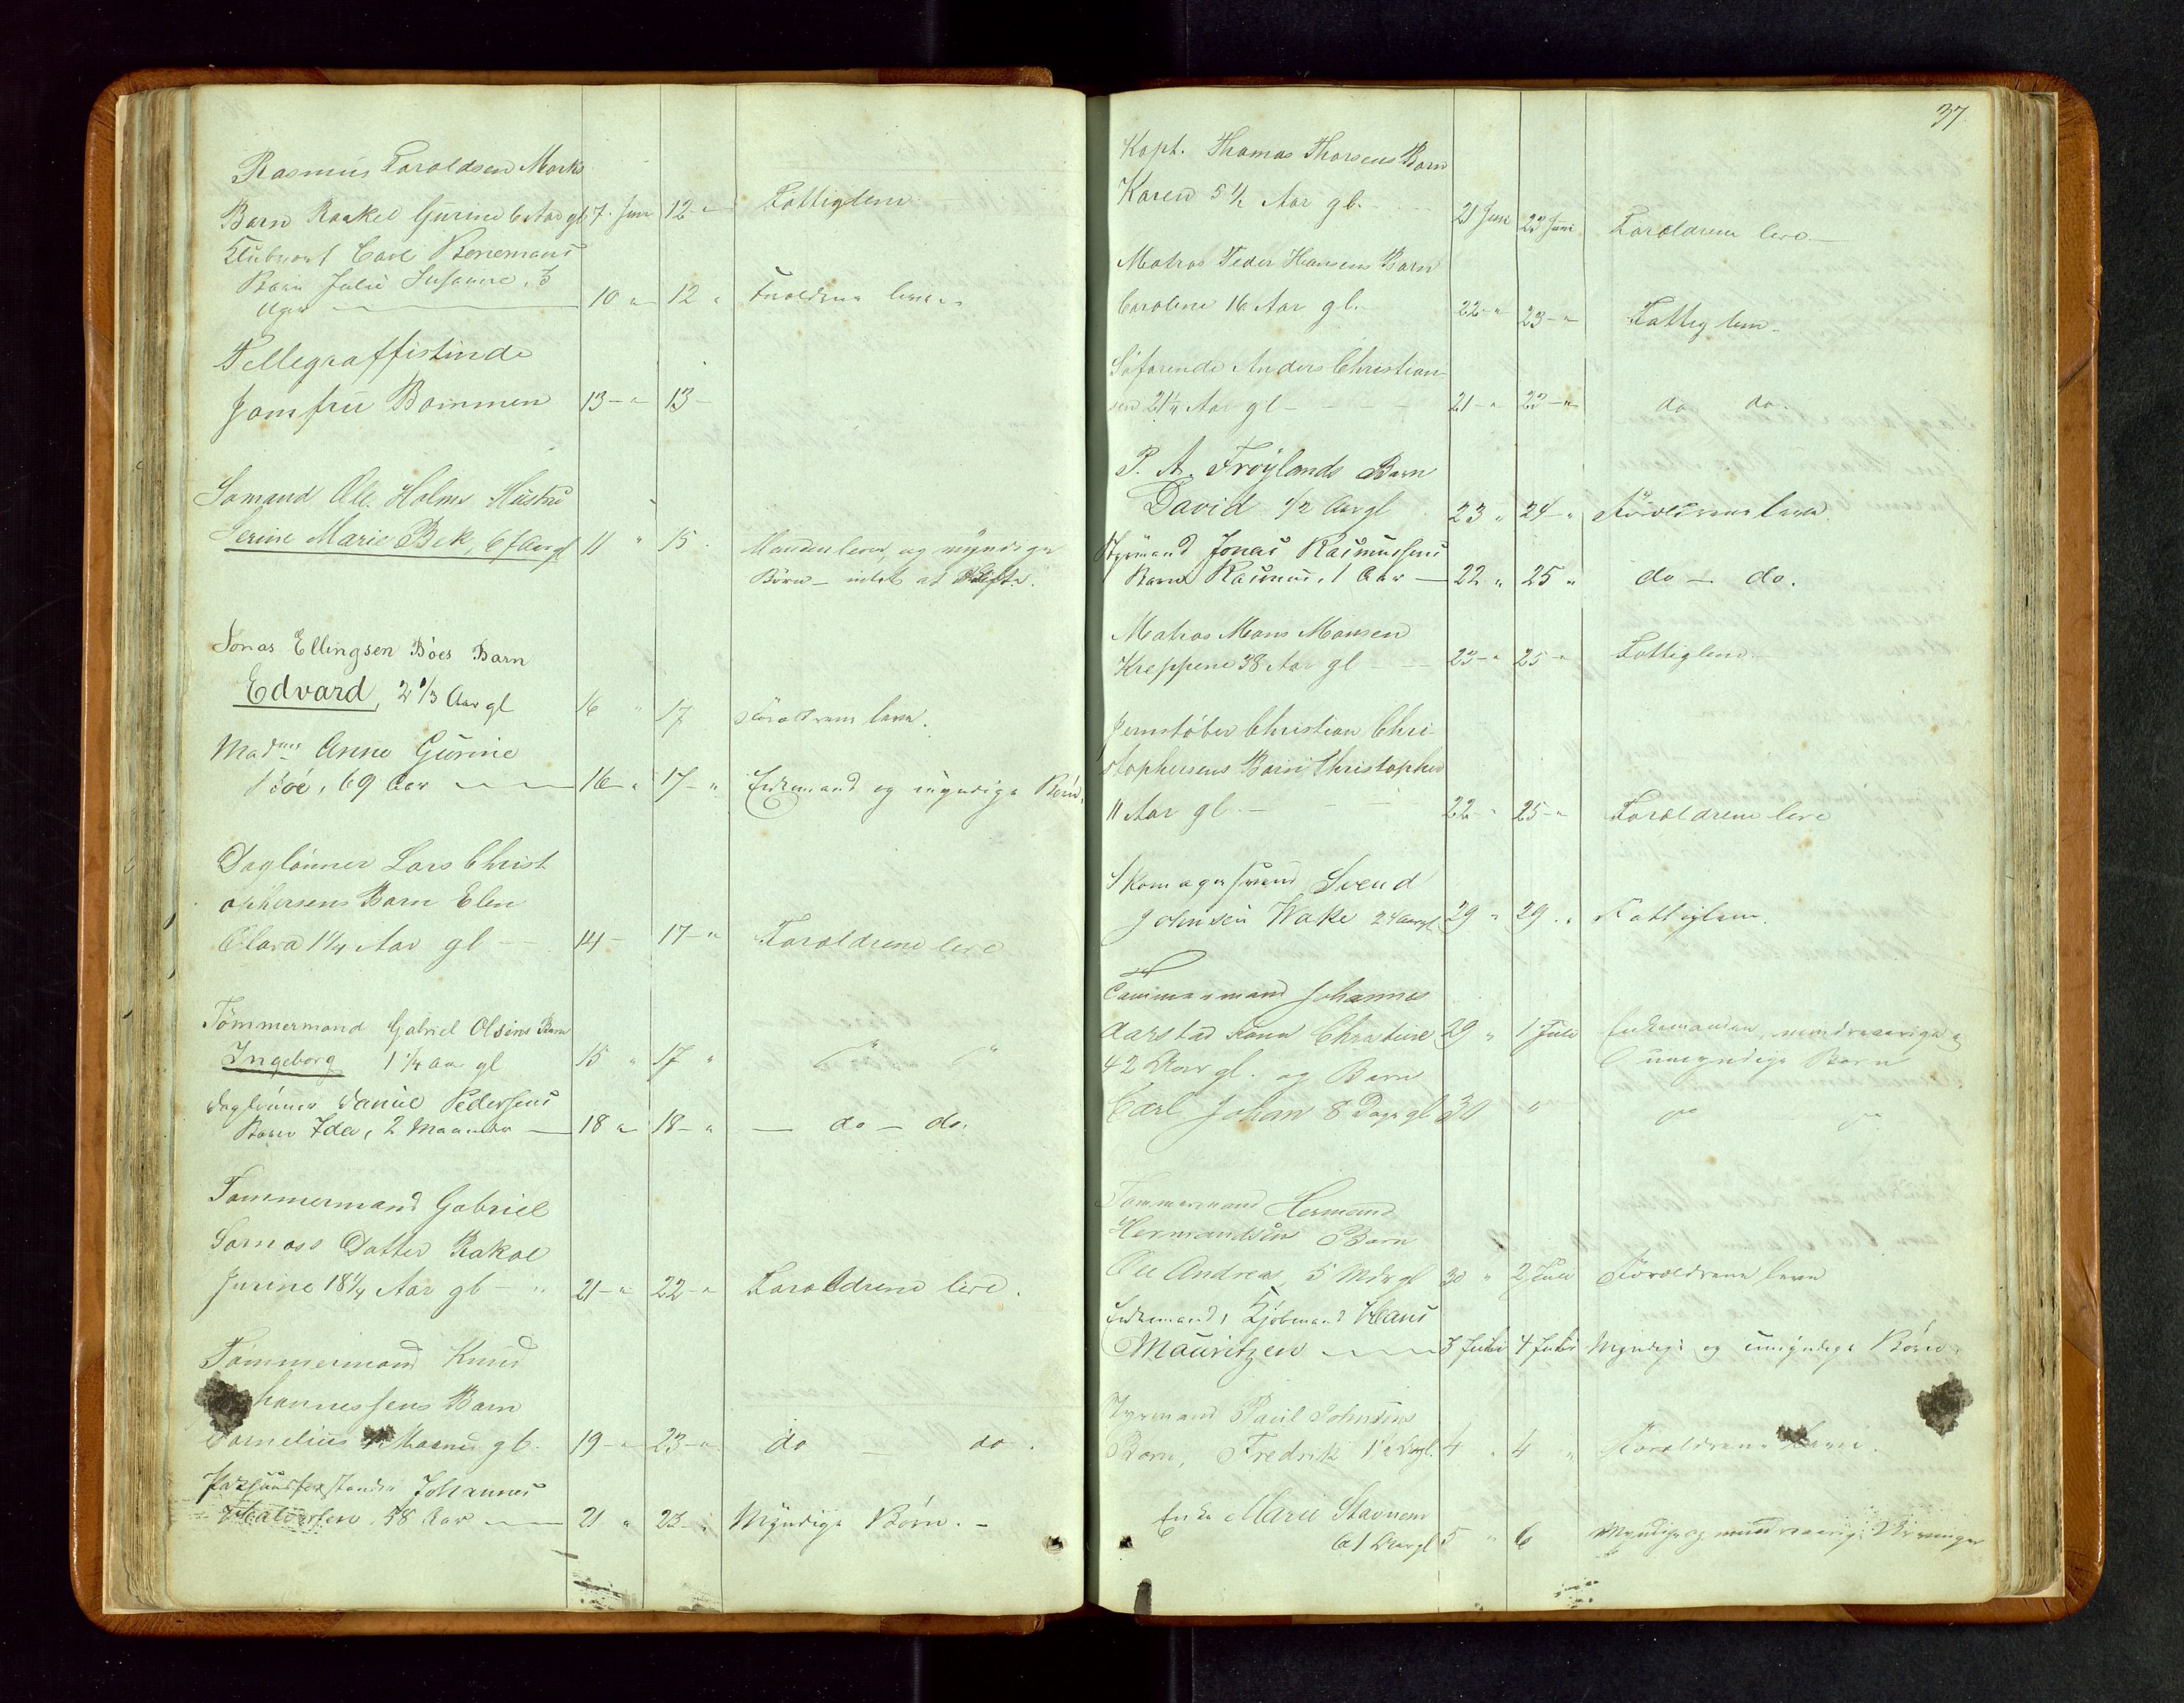 Rasmus Taraldsen Morks
Barn Raakel Gurine 6 Aar gl 7. Juni 12 " Fattiglem
Klubvært Carl Bonemans
Barn Julie Susanne, 3
Uger 10 " 12 " Forældrene leve
Tellegraffistinde
Jomfru Bommen 13 - " 13 -
Sømand Ole Holms Hustru
Serine Marie Bek, 6 Aar gl 11 " 15 Manden lever, og myndige
Børn - intet at skifte.
Jonas Ellingsen Böes Barn
Edvard, 2 1/3 Aar gl 16 " 17 Forældrene leve.
Madme Anne Gurine
Böe, 69 Aar 16 " 17 - " Enkemand og myndige Børn.
Daglønner Lars Christ
ophersens Barn Elen
Clara 1 1/4 Aar gl 14 - 17 - " Forældrene leve
Tömmermand Gabriel Olsens Barn
Ingeborg 1 1/4 Aar gl 15 " 17 " " "
Daglønner Daniel Pedersens
Barn Ida, 2 Maaneder 18 " 18 - " - do - do.
Tømmermand Gabriel
Datter Rakel
Jurine 18 1/4 Aar gl 21 - " 22 - " Forældrene leve.
Tømmermand Knud
hannessens Barn
Cornelius Maaned gl. 19 - " 23 - " do - do.
Johannes
Halvorsen, 58 Aar 21 " 23 - " Myndige Börn. -
37.
Kapt. Thomas Thorsens Barn
Karen 5 1/2 Aar gl. 21 Juni 23 Juni Forældrene leve. -
Matros Peder Hansens Barn
Caroline 16 Aar gl. 22 - " 23 - " Fattiglem -
Søfarende Anders Christian-
sen 21 1/4 Aar gl - 21 - " 23 - " do do.
P. A. Fröylands Barn
David 1/2 Aar gl 23 " 24 - " Forældrene leve.
Styrmand Jonas Rasmussens
Barn Rasmus, 1 Aar - 22 " 25 " do - do.
Matros Mons Monsen
Kreppene 38 Aar gl - 23 - " 25 - " Fattiglem -
Jernstøber Christian Chri-
stophersens Barn Christopher
11 Aar gl. - 22 - " 25 - " Forældrene leve
Skomagersvend Svend
Johnsen Wake 24 Aar gl 29 " 29 . " Fattiglem.
Tømmermand Johannes
Aarstad Kone Christine 29 " 1 Juli Enkemanden, mindreaarige &
42 Aar gl. og Barn umyndige Børn
Carl Johan 8 Dage gl 30 " " "
Tømmermand Hermand
Hermandsen Barn
Ole Andreas, 5 Mdr gl 30 " 2 Juli Forældrene leve
Enkemand, Kjøbmand Hans
Mauritzen 3 Juli 4 Juli Myndige og umyndige Børn.
Styrmand Paul Johnsens
Barn, Fredrik 1 1/2 Aar gl. 4 " 4 " Forældrene leve.
Enke Marie Stavnem
61 Aar gl 5 " 6 Myndige og mindreaarige Arvinger